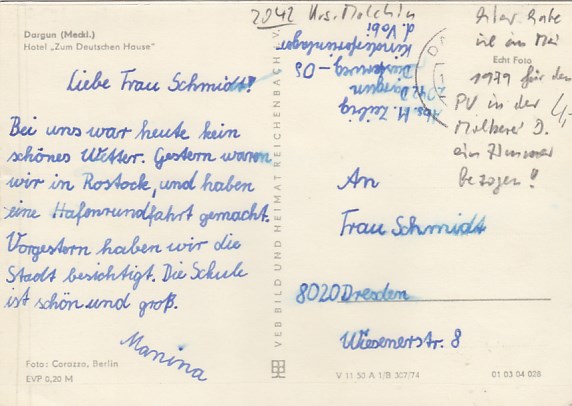 Dargun (Meckl.)
Hotel „Zum Deutschen Hause"
Liebe Frau Schmidt!
Bei uns war heute kein
schönes Wetter. Gestern waren
wir in Rostock, und haben
eine Hafenrundfahrt gemacht.
Vorgestern haben wir die
Stadt besichtigt. Die Schule
ist schön und groß.
Manina
Foto: Corazza, Berlin
EVP 0,20 M
VEB BILD UND HEIMAT REICHENBACH V.
2042 Krs. Malchin
Abs. M. Zeibig
2042 Dargun
Kinderferienlager
d. VoBi
Hier habe
ich im Mai
Echt Foto
1979 für den
PV in der
Molkerei D.
ein Zimmer
bezogen!
4,-
An
Frau Schmidt
8020 Dresden
Wiesenerstr. 8
V 11 50 A 1/B 307/74
01 03 04 028